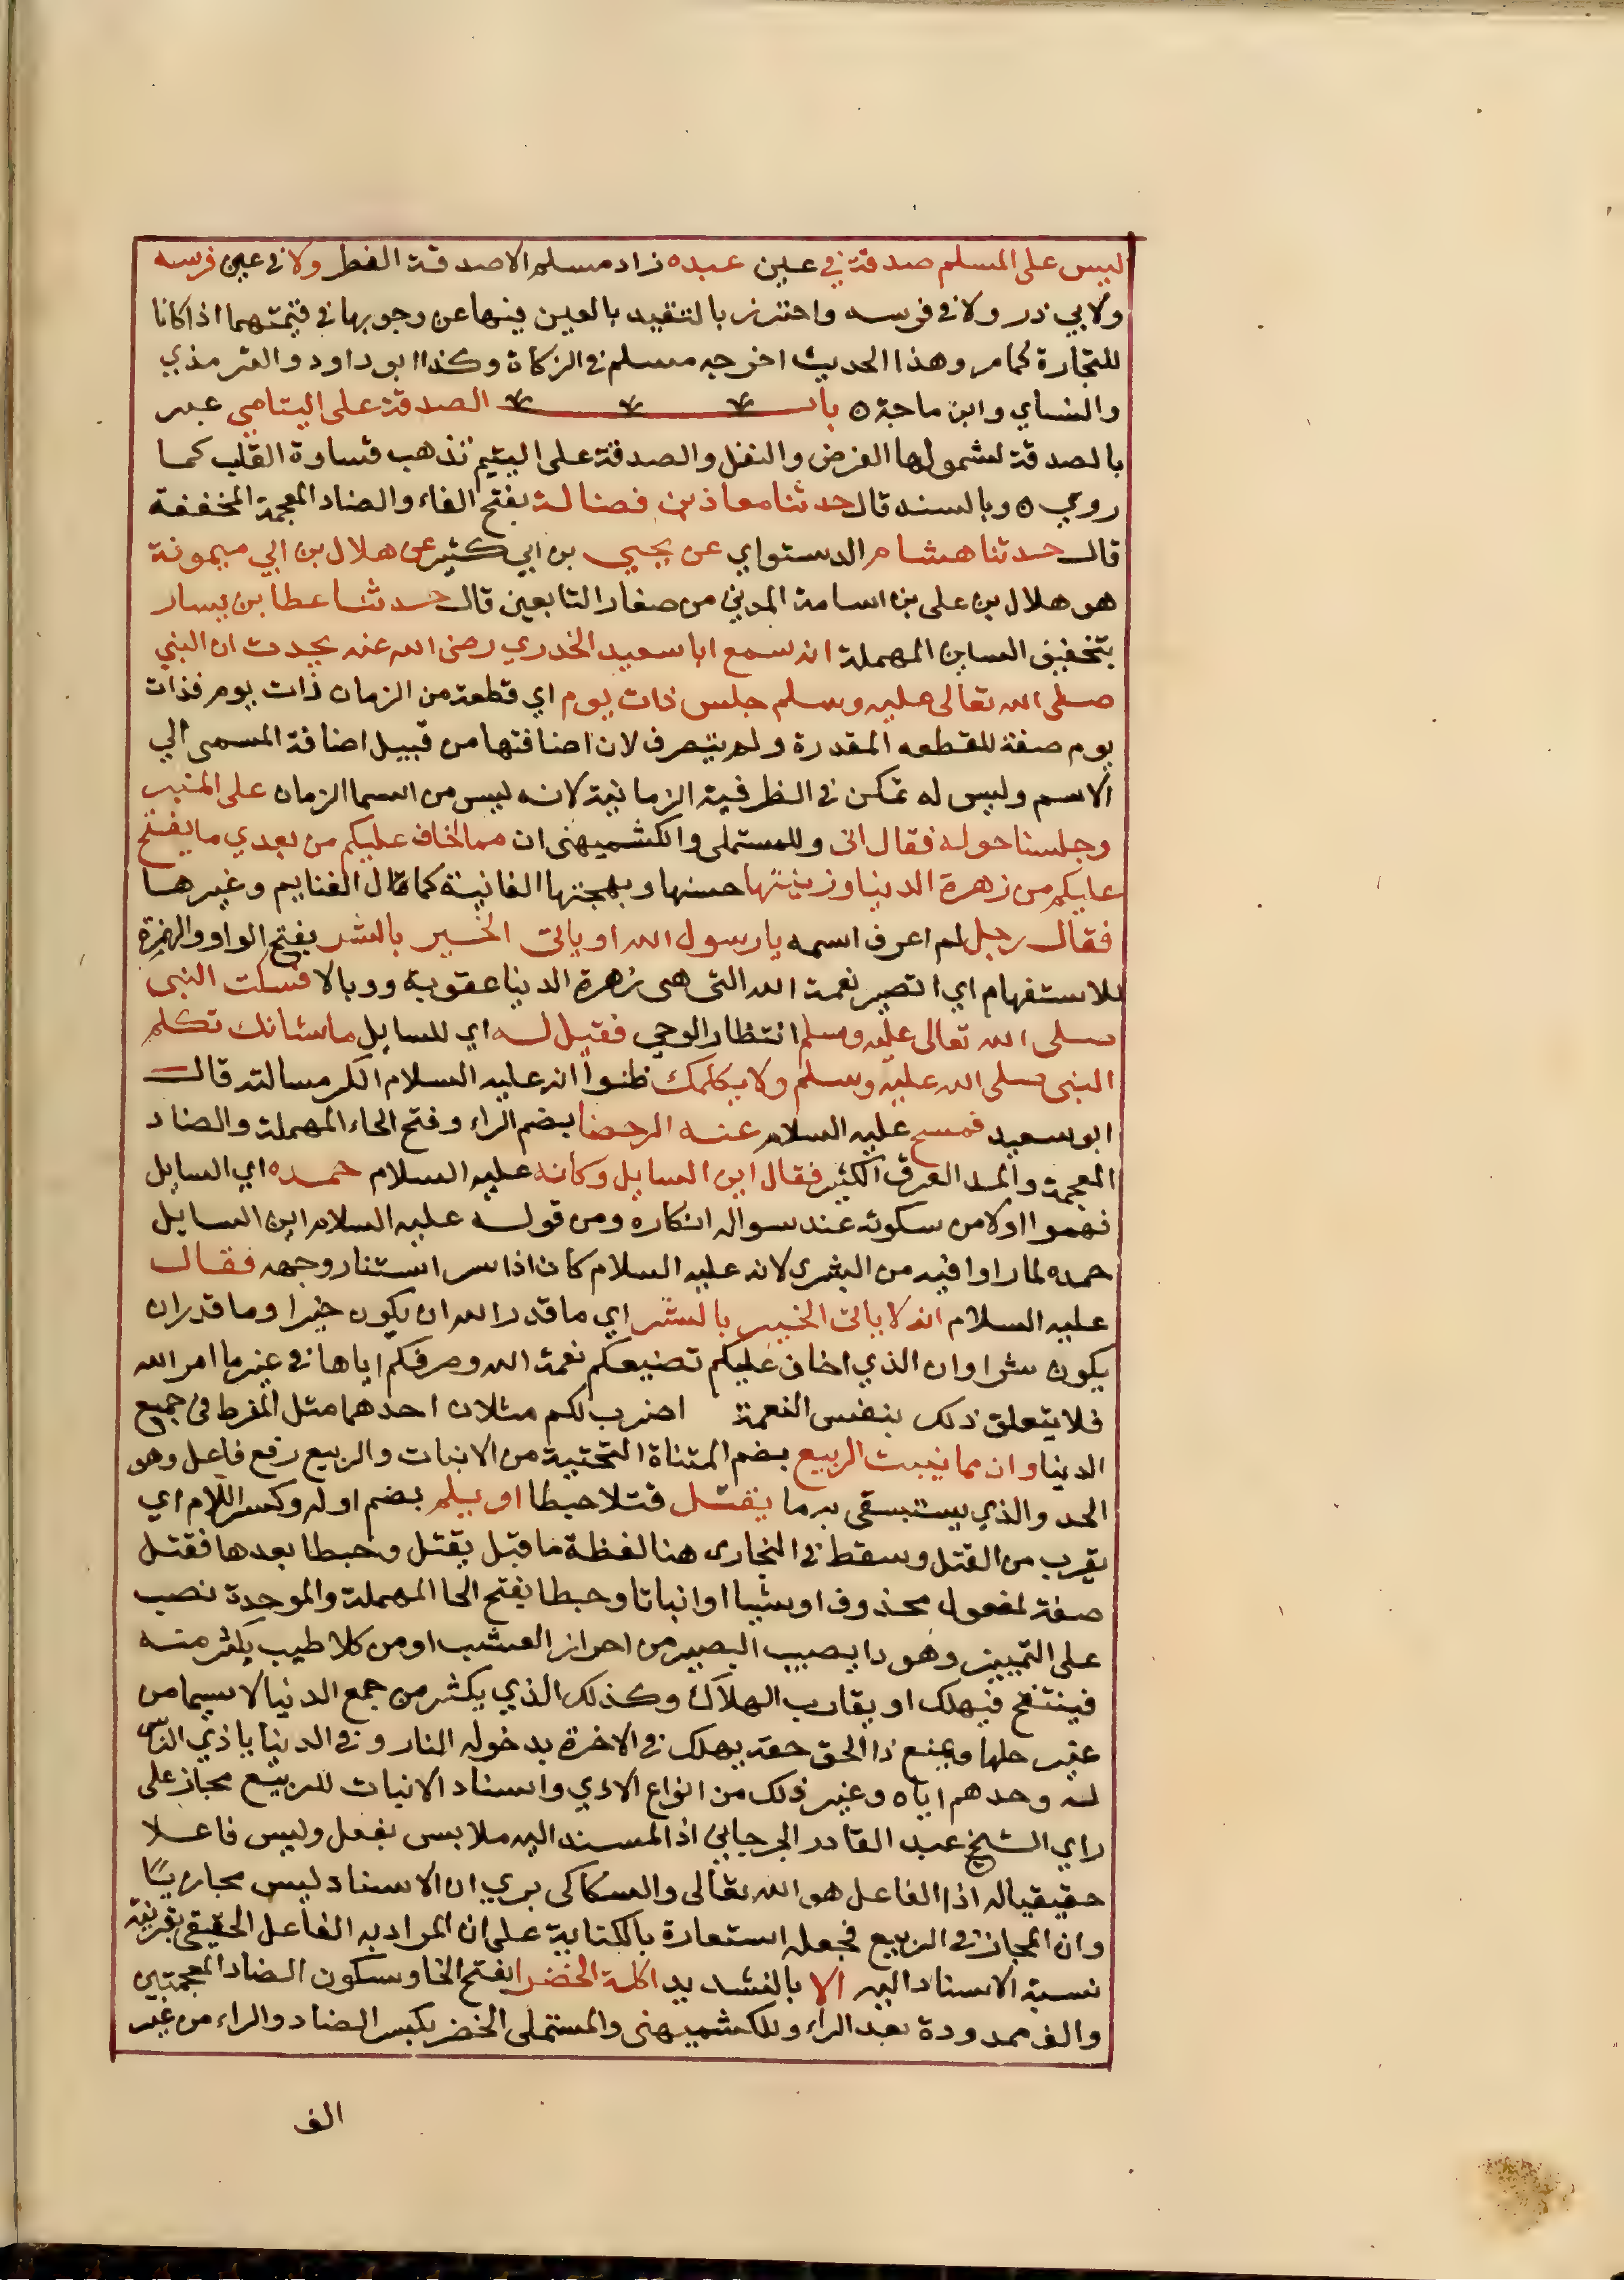 ليس على المسلم صدقة في عين عبده زاد مسلم الا صدقة الفطر ولا في عين فرسه
ولابي ذر ولا في فرسه واحترز بالتقييد بالعين فيهما عن وجوبها في قيمتهما اذا كانا
للتجارة كما مر وهذا الحديث اخرجه مسلم في الزكاة وكذا ابو داود والترمذي
والنساي وابن ماجة ه باب الصدقة على اليتامي عبر
بالصدقة لشمولها الفرض والنفل والصدقة على اليتيم تذهب قساوة القلب كما
روي ه وبالسند قال حدثنا معاذ بن فضالة بفتح الفاء والضاد المعجمة المخففة
قال حدثنا هشام الدستواي عن يحيي بن ابي كثير عن هلال بن ابي ميمونة
هو هلال بن على بن اسامة المدني من صغار التابعين قال حدثنا عطا بن يسار
بتخفيف السين المهملة انه سمع ابا سعيد الخدري رضى الله عنه يحدث ان النبي
صلى الله تعالى عليه وسلم جلس ذات يوم اي قطعة من الزمان ذات يوم فذات
يوم صفة للقطعه المقدرة ولم يتصرف لان اضافتها من قبيل اضافة المسمى الي
الاسم وليس له تمكن في الظرفية الزمانية لانه ليس من اسما الزمان على المنبر
وجلسنا حوله فقال انى وللمستملى والكشميهنى ان مما اخاف عليكم من بعدي ما يفتح
عليكم من زهرة الدنيا وزينتها حسنها وبهجتها الفانية كما قال الغنايم وغيرها
فقال رجل لم اعرف اسمه يا رسول الله او ياتى الخير بالشر بفتح الواو والهمزة
للاستفهام اي اتصير نعمة الله التى هى زهرة الدنيا عقوبة ووبالا فسكت النبى
صلى الله تعالى عليه وسلم انتظار الوحي فقيل له اي للسايل ما شانك تكلم
النبى صلى الله عليه وسلم ولا يكلمك ظنوا انه عليه السلام انكر مسالته قال
ابو سعيد فمسح عليه السلام عنه الرحضا بضم الراء وفتح الحاء المهملة والضاد
المعجمة والمد العرق الكثير فقال اين السايل وكانه عليه السلام حمده اي السايل
فهموا اولا من سكوته عند سواله انكاره ومن قوله عليه السلام اين السايل
حمده لما راوا فيه من البشرى لانه عليه السلام كان اذا سر استنار وجهه فقال
عليه السلام انه لا ياتى الخير بالشر اي ما قدر الله ان يكون خيرا وما قدر ان
يكون شرا وان الذي اخاف عليكم تضييعكم نعمة الله وصرفكم اياها في غير ما امر الله
فلا يتعلق ذلك بنفس النعمة اضرب لكم مثلان احدهما مثل المفرط فى جميع
الدنيا وان مما ينبت الربيع بضم المثناة التحتية من الانبات والربيع رفع فاعل وهو
الحد والذي يستبسقى به ما يقتل قتلا حبطا او يلم بضم اوله وكسر اللام اي
يقرب من القتل وسقط في البخارى هنا لفظة ما قبل يقتل وحبطا بعدها فقتل
صفة لمفعول محذوف او شيا او انباتا وحبطا بفتح الحا المهملة والموحدة نصب
على التمييز وهو دا يصيب البصير من احرار العشب او من كلا طيب يكثر منه
فينتفخ فيهلك او يقارب الهلاك وكذلك الذي يكثر من جمع الدنيا لا سيما من
غير حلها ويمنع ذا الحق حقه يهلك في الاخرة بدخوله النار وفي الدنيا باذي الناس
له وحدهم اياه وغير ذلك من انواع الاذي واسناد الانبات للربيع مجاز على
راي الشيخ عبد القادر الجرجاني اذ المسند اليه ملابس بفعل وليس فاعلا
حقيقيا له اذ الفاعل هو الله تعالى والسكاكى يري ان الاسناد ليس مجازيًا
وان المجاز في الربيع فجعله استعارة بالكناية على ان المراد به الفاعل الحقيقى بقرينة
نسبة الاسناد اليه الا بالتشديد اكلة الخضرا بفتح الخا وسكون الضاد المعجمتين
والف ممدودة بعد الراء وللكشميهنى والمستملى الخضر بكسر الضاد والراء من غير
الف